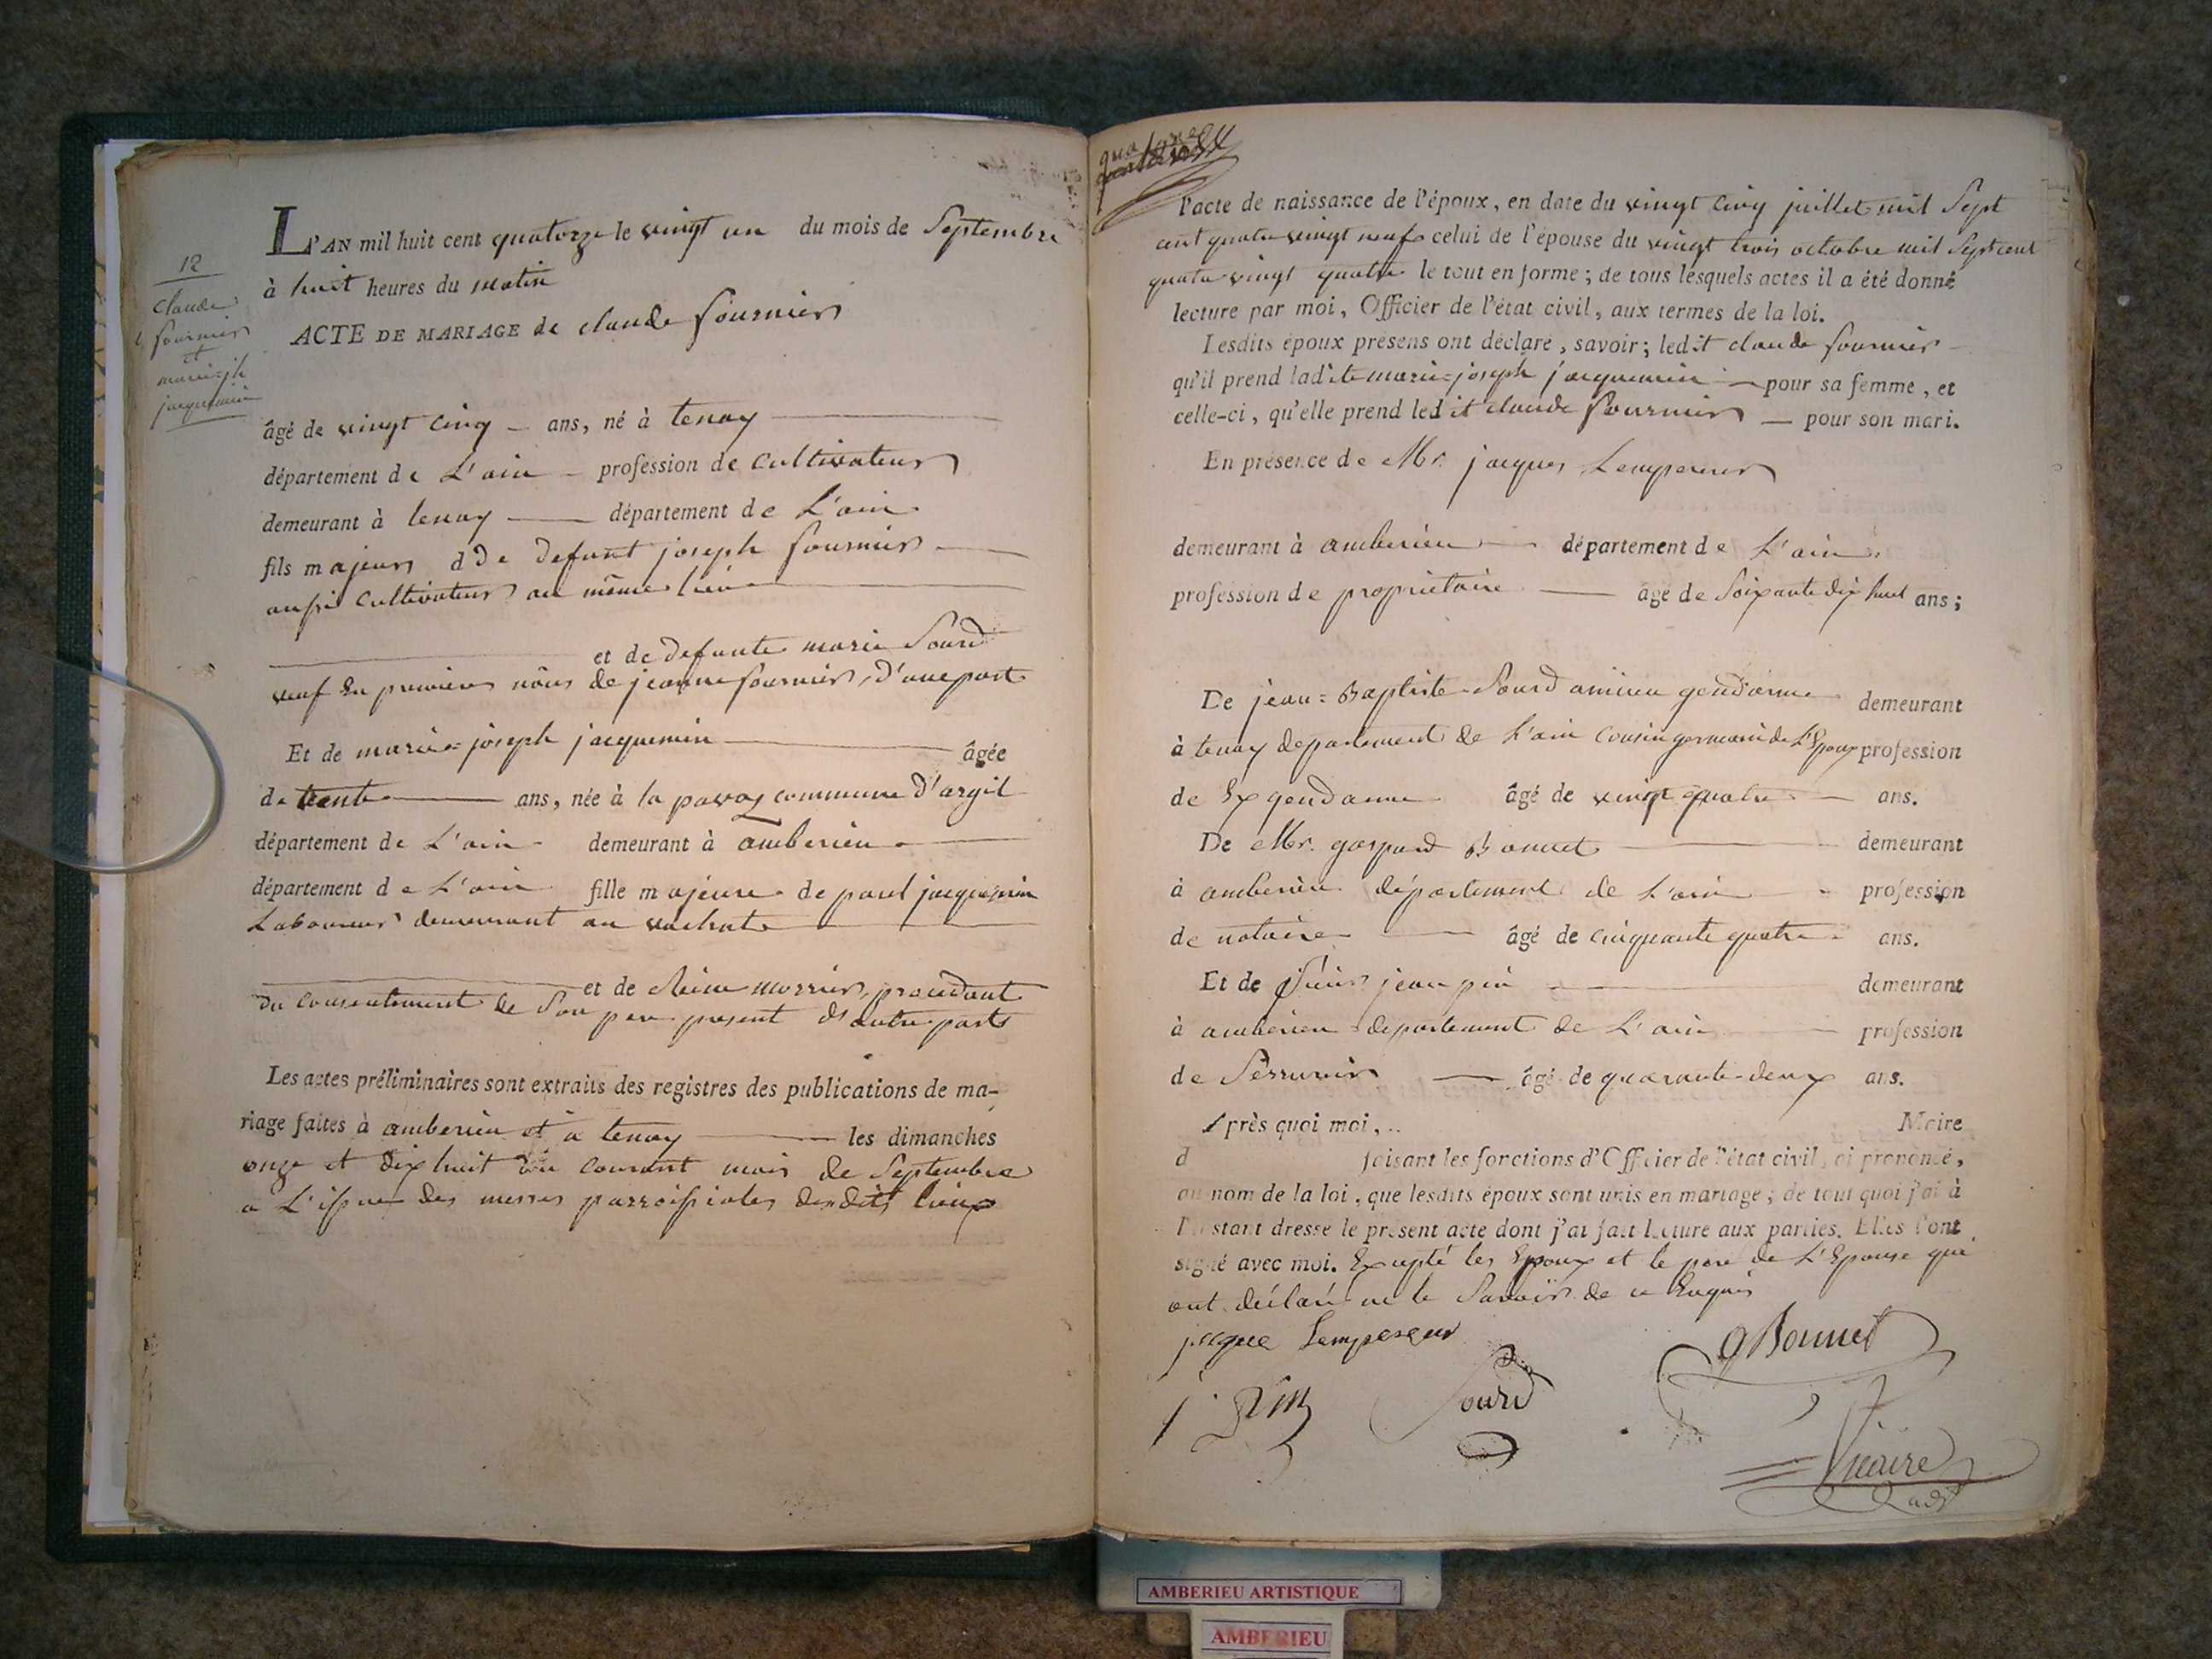 12
claude
fournier
et
marie=jh
jacquemin
L'AN mil huit cent quatorze le vingt un du mois de Septembre
à huit heures du matin
ACTE DE MARIAGE de claude fournier
âgé de vingt cinq ans, né à tenay
département de L'ain profession de Cultivateur
demeurant à tenay département de L'ain
fils majeur d de defunt joseph fournier
aussi Cultivateur au même lieu
et de defunte marie Sourd
veuf En premiere nôces de jeanne fournier, d'une part
Et de marie=joseph jacquemin âgée
de trente ans, née à la pavaz commune d'argil
département de L'ain demeurant à amberieu
département de L'ain fille majeure de paul jacquemin
Laboureur demeurant au vachat
et de Reine morrier, procedant
du consentement de Son pere present d'autre part
Les actes préliminaires sont extraits des registres des publications de ma-
riage faites à amberieu et à tenay les dimanches
onze et dix huit du courant mois de Septembre
a L'issue des messes parroissiales desdits lieux
quatorze
l'acte de naissance de l'époux, en date du vingt cinq juillet mil Sept
cent quatre vingt neuf celui de l'épouse du vingt trois octobre mil Sept cent
quatre vingt quatre le tout en forme; de tous lesquels actes il a été donné
lecture par moi, Officier de l'état civil, aux termes de la loi.
Lesdits époux présens ont déclaré, savoir; ledit claude fournier
qu'il prend ladite marie=joseph jacquemin pour sa femme, et
celle-ci, qu'elle prend ledit claude fournier pour son mari.
En présence de Mr. jacques Lempereur
demeurant à amberieu département de L'ain
profession de propriétaire âgé de Soixante dix huit ans;
De jean=Baptiste Sourd gendarme demeurant
à tenay departement de L'ain cousin germain de L'Epoux profession
de Ex gendarme âgé de vingt quatre ans.
De Mr. gaspard Bonnet demeurant
à amberieu département de L'ain profession
de notaire âgé de cinquante quatre ans.
Et de Sieur jean pin demeurant
à amberieu departement de L'ain profession
de Serrurier âgé de quarante deux ans.
Après quoi moi, Maire
d faisant les fonctions d'Officier de l'état civil, ai prononcé,
au nom de la loi, que lesdits époux sont unis en mariage; de tout quoi j'ai à
l'instant dressé le présent acte dont j'ai fait lecture aux parties. Elles l'ont
signé avec moi. Excepté les Epoux et le pere de L'Epouse qui
ont déclaré ne le Savoir de ce Enquis
jaque Lempereur
g Bonnet
j. Pin
Sourd
Vicaire
adjt
AMBERIEU ARTISTIQUE
AMBERIEU